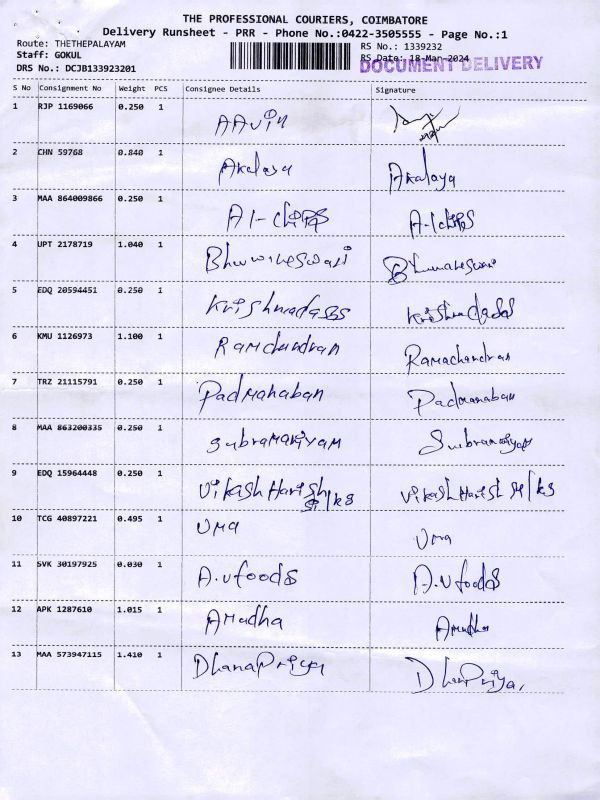 THE PROFESSIONAL COURIERS, COIMBATORE
Delivery Runsheet - PRR - Phone No.:0422-3505555 - Page No.:1
Route: THETHEPALAYAM
RS No.: 1339232
Staff: GOKUL
RS Date: 18-Mar-2024
DOCUMENT DELIVERY
DRS No.: DCJB133923201
S No Consignment No Weight PCS Consignee Details Signature
1 RJP 1169066 0.250 1 AAvin
2 CHN 59768 0.840 1 Akalaya Akalaya
3 MAA 864009866 0.250 1 A1-chips A-1chips
4 UPT 2178719 1.040 1 Bhuwneswari Bhuvaneswari
5 EDQ 20594451 0.250 1 Krishnadass Krishnadass
6 KMU 1126973 1.100 1 Ramchandran Ramachandran
7 TRZ 21115791 0.250 1 Padmanaban Padmanaban
8 MAA 863200335 0.250 1 Subramaniyam Subramaniyam
9 EDQ 15964448 0.250 1 Vikash Harish Vikash Harish
10 TCG 40897221 0.495 1 Uma Uma
11 SVK 30197925 0.030 1 A.v foods A.v foods
12 APK 1287610 1.015 1 Amudha Amudha
13 MAA 573947115 1.410 1 DhanaPriya DhanPriya